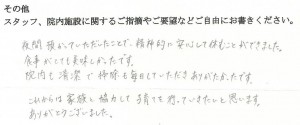 その他
スタッフ、院内施設に関するご指摘やご要望などご自由にお書きください。
夜間預かっていただいたことで、精神的に安心して休むことができました。
食事がとても美味しかったです。
院内も清潔で掃除も毎日していただきありがたかったです。
これからは家族と協力して子育てを楽しんでいきたいと思います。
ありがとうございました。